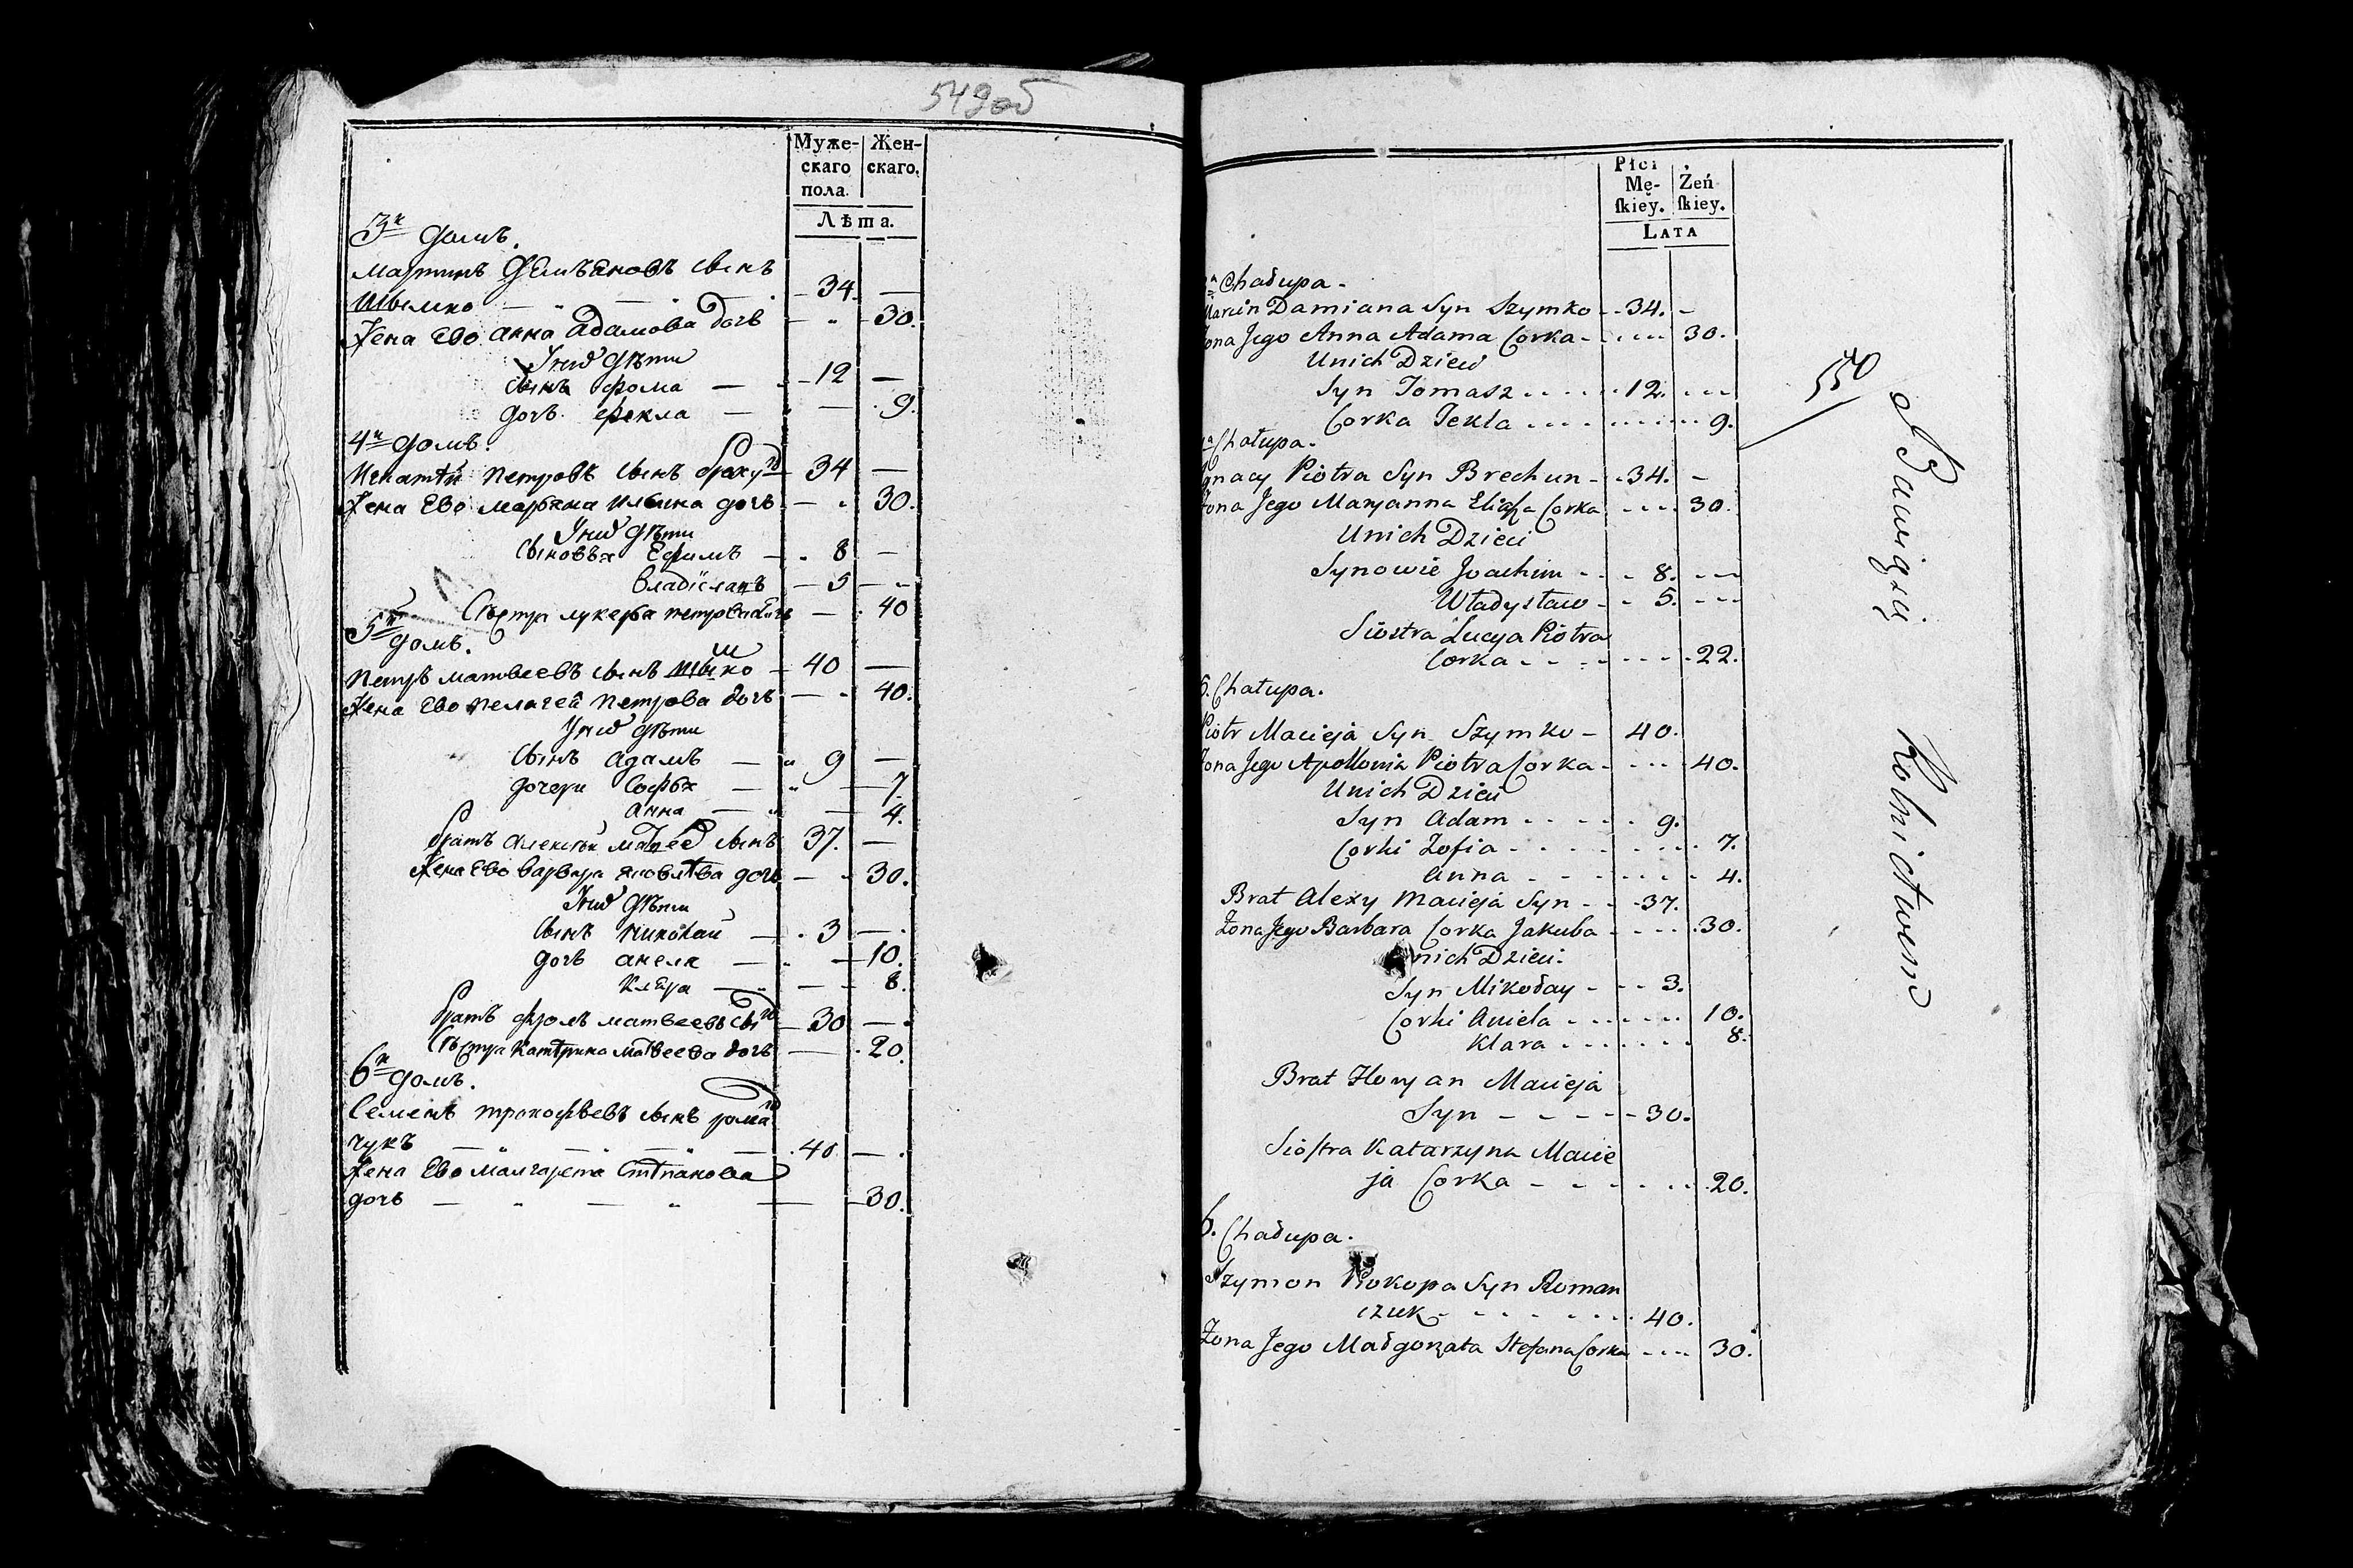 549 об
Муже-
скаго
пола.
Жен-
скаго.
Лѣта.
3й домъ.
Мартинъ Демьяновъ сынъ
Шымко 34
Жена Ево Анна Адамова дочь 30.
У нихъ дѣти
сынъ Фома 12
дочь Фекла 9.
4й домъ.
Игнатѣй Петровъ сынъ 34
Жена Ево Марьяна Ильина дочь 30.
У нихъ дѣти
сыновья Ефимъ 8
Владіславъ 5
Сѣстра Лукерья Петрова дочь 40
5й домъ.
Петръ Матвеевъ сынъ 40
Жена Ево Пелагея Петрова дочь 40.
У нихъ дѣти
сынъ Адамъ 9
дочери Софья 7.
Анна 4.
Братъ Алексѣй сынъ 37.
Жена Ево Варвара Яковлева дочь 30.
У нихъ дѣти
сынъ Николай 3
дочь Анеля 10.
Кляра 8.
Братъ Фролъ Матвеевъ сынъ 30
Сѣстра Катѣрина Матвеева дочь 20.
6й домъ.
Семенъ Прокофьевъ сынъ Роман
чукъ 40
Жена Ево Малгарета Стѣпанова
дочь 30.
Płci
Mę-
ſkiey.
Żeń
ſkiey.
LATA
550
Chałupa.
Marcin Damiana Syn Szymko 34.
Żona Jego Anna Adama Corka 30.
Unich Dzieci
Syn Tomasz 12.
Corka Tekla 9.
Chałupa.
Ignacy Piotra Syn Brechun 34.
Żona Jego Maryanna Eliaſza Corka 30.
Unich Dzieci
Synowie Joachim 8.
Władysław 5.
Siostra Lucya Piotra
Corka 22.
5. Chałupa.
Piotr Macieja Syn Szymko 40.
Żona Jego Apollonia Piotra Corka 40.
Unich Dzieci
Syn Adam 9.
Corki Zofia 7.
Anna 4.
Brat Alexy Macieja Syn 37.
Żona Jego Barbara Corka Jakuba 30.
Unich Dzieci.
Syn Mikołay 3.
Corki Aniela 10.
Klara 8.
Brat Floryan Macieja
Syn 30.
Sioſtra Katarzyna Macie
ja Corka 20.
6. Chałupa.
Szymon Prokopa Syn Roman
czuk 40.
Żona Jego Małgorzata Stefana Corka 30.
Bawiący Rolnictwem